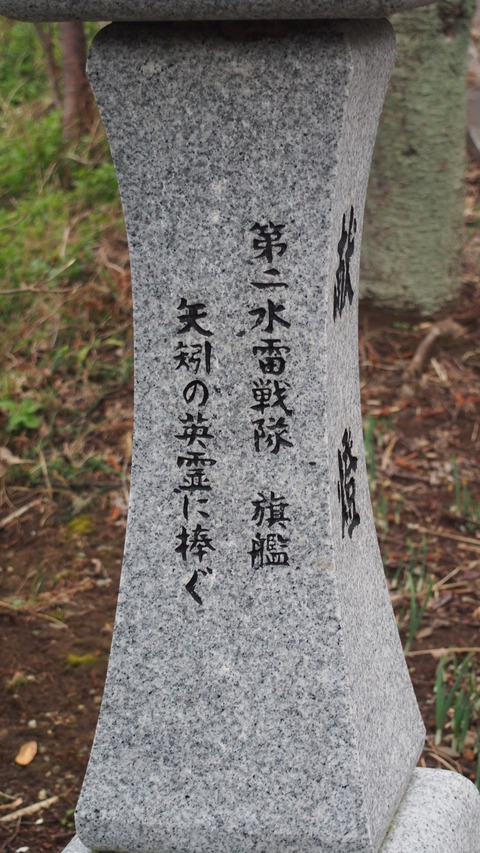 第二水雷戦隊 旗艦
矢矧の英霊に捧ぐ
献燈